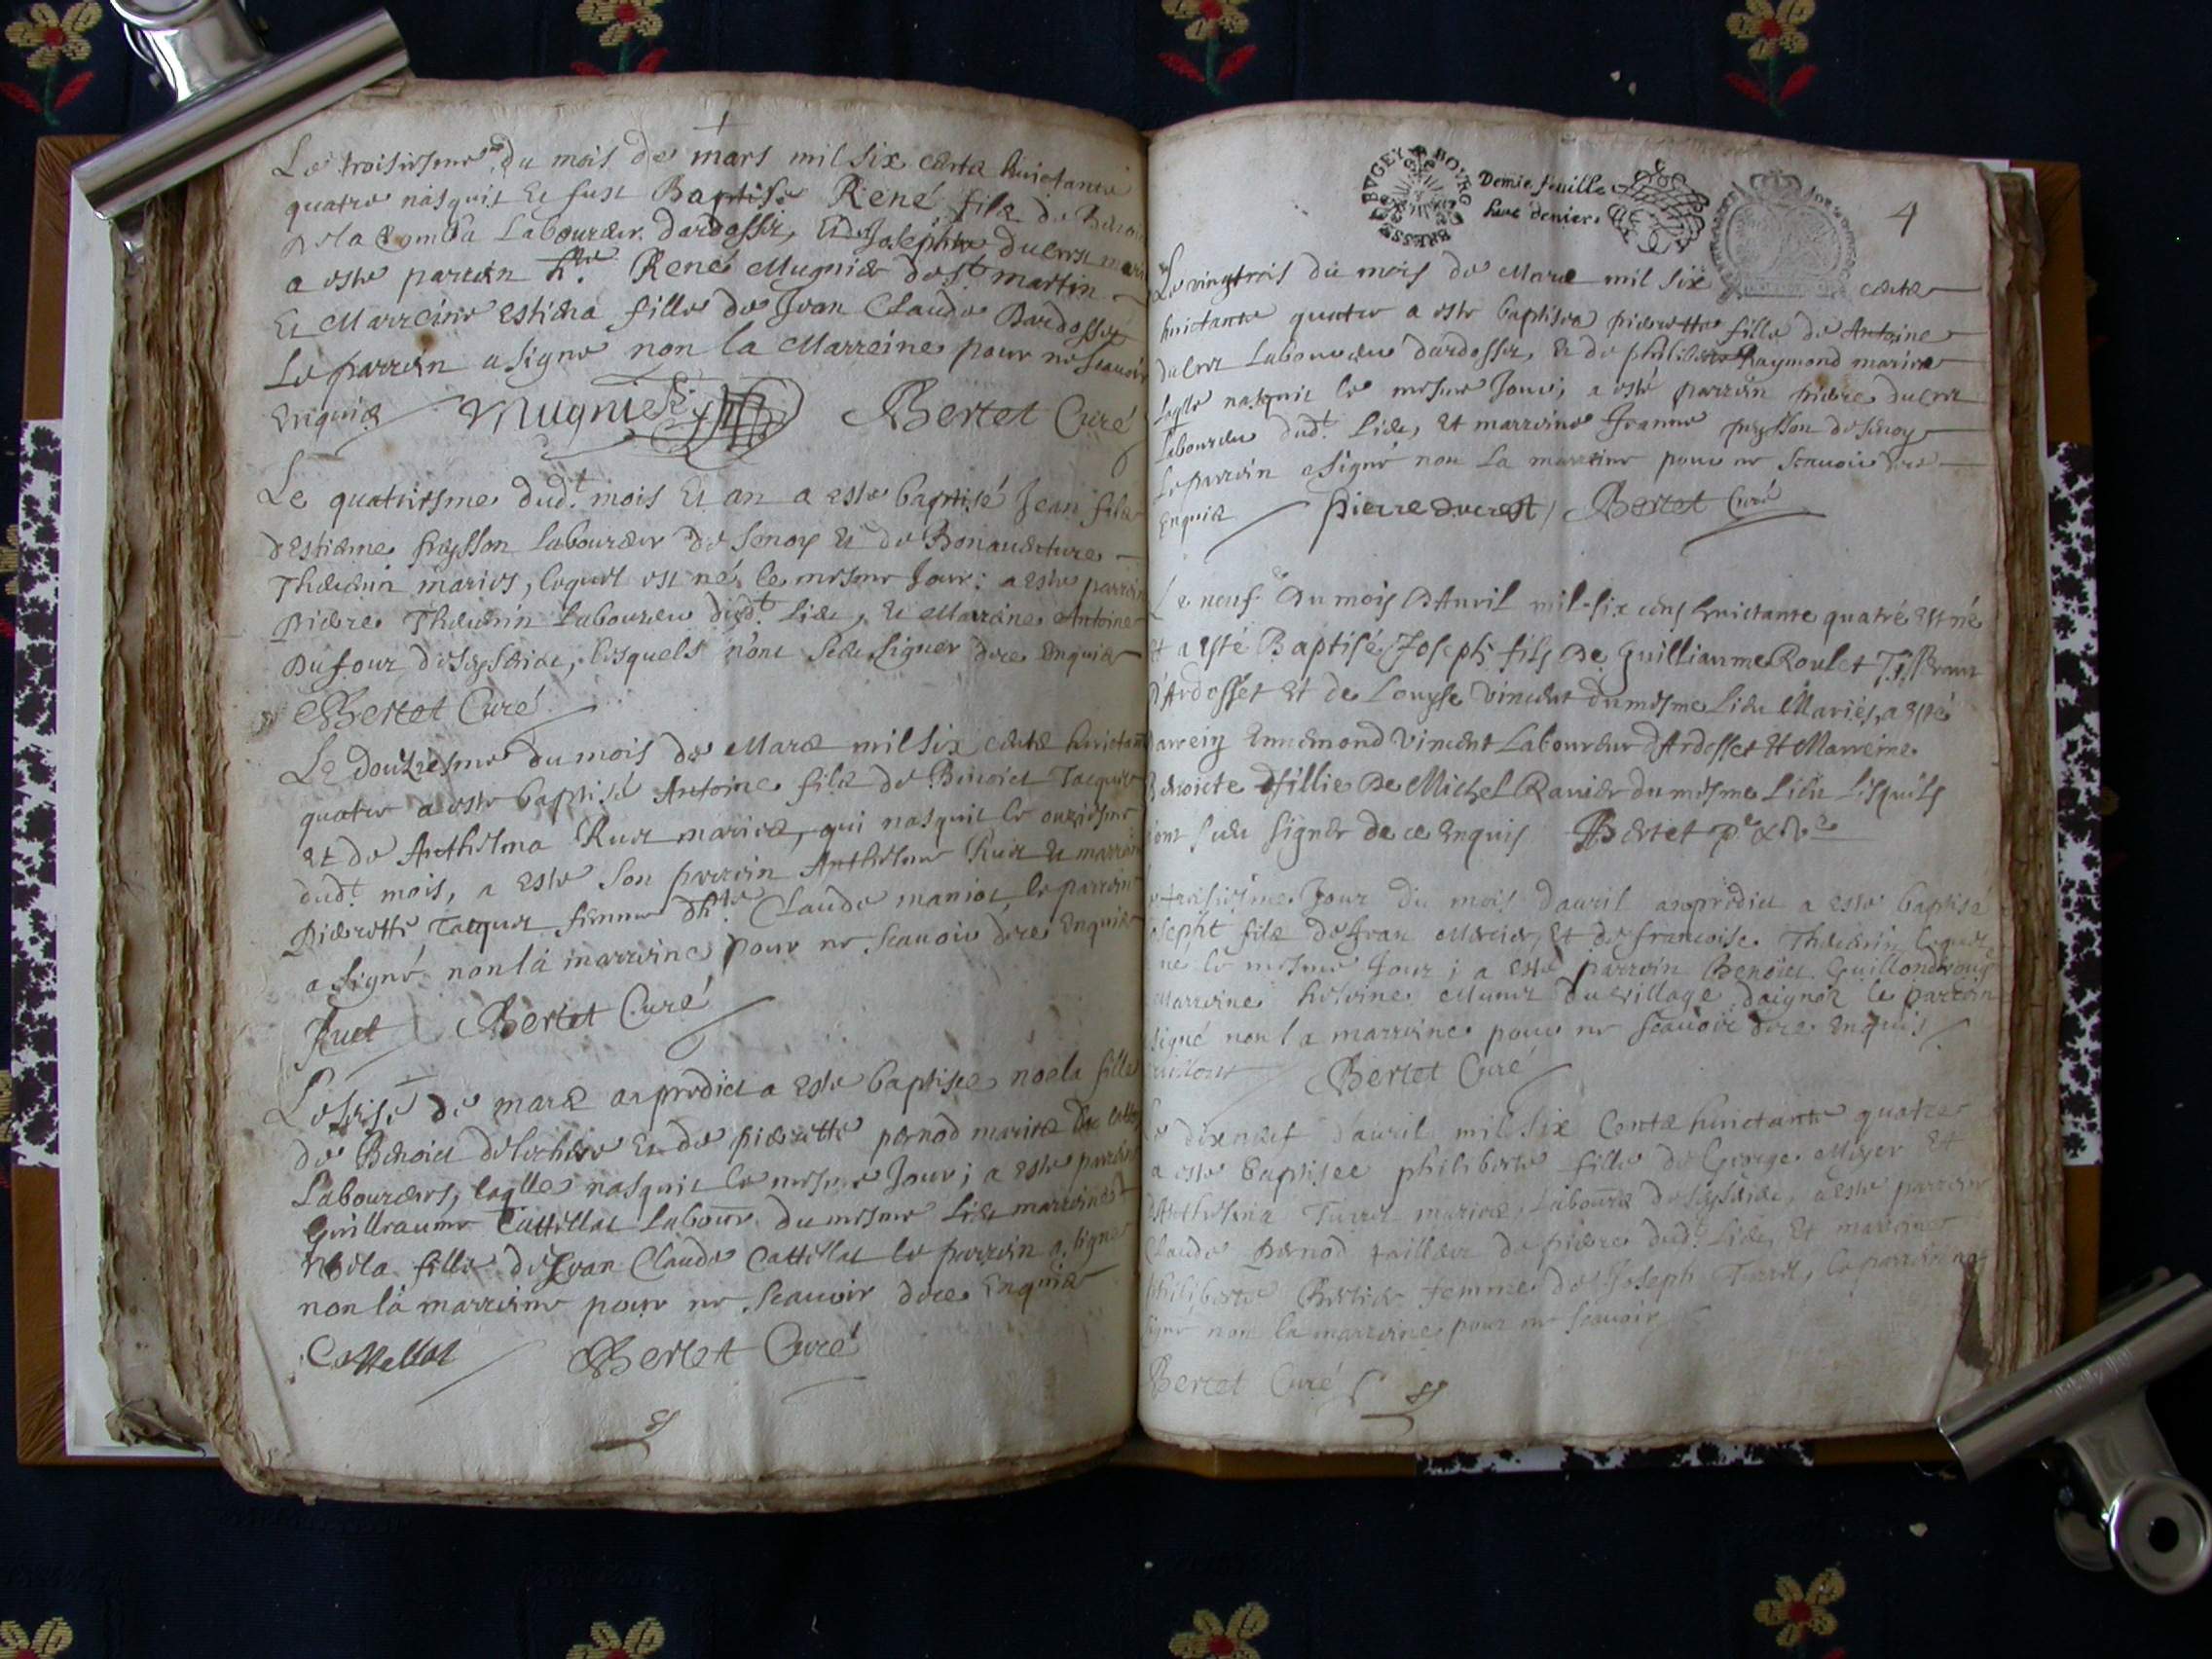 Le troisiesme du mois de mars mil six cents huictante
quatre nasquit et fust Baptisé René fils de Benoi
de la Comba Laboureur dardosset, et Josephte ducrest mari
a esté parrin h.ble René Mugnier de St martin
Et Marreine Estiena fille de Jean Claude Bardosset
Le parrein a signé non la Marreine pour ne scauoir
Enquis Mugnier Bertet Curé
Le quatriesme dud.t mois Et an a esté baptisé Jean fils
dEstiene freysson laboureur de Senoy Et de Bonauenture
Theuenin mariés, lequel est né le mesme Jour; a esté parrein
pierre Theuenin laboureur dud.t lieu, Et Marreine Antoine
Dufour de seysseieu, lesquels n'ont sceu signer de ce Enquis
Bertet Curé
Le douziesme du mois de Mars mil six cents huictante
quatre a esté baptisé Antoine fils de Benoict Jacquet
et de Anthelma Ruet mariés, qui nasquit le onziesme
dud.t mois, a esté son parrein Anthelme Ruet Et marrei
pierrette Jacquet femme d'h.ble Claude maniot, le parrein
a signé non la marreine pour ne scauoir de ce Enquis
Ruet Bertet Curé
Le seise de mars an predict a esté baptisee noela fille
de Benoict delochere Et de pierrette pernod mariés
Laboureurs, laqlle nasquit le mesme Jour; a esté parrein
Guilleaume Cattillat labour. du mesme lieu marreine
Noela fille de Jean Claude Cattillat le parrein a signé
non la marreine pour ne scauoir de ce Enquis
Cattellat Bertet Curé
BRESSE BVGEY BOVRG
Demie feuille
huit deniers
4
Le vingtrois du mois de Mars mil six cents
huictante quatre a esté baptisea pierrette fille de Antoine
ducrest Laboureur dardosset, Et de philiberte Raymond mariés
laqlle nasquit le mesme Jour; a esté parrein pierre ducrest
laboureur dud.t lieu, Et marreine Jeanne freysson de senoy
Le parrein a signé non la marreine pour ne scauoir de ce
Enquis pierre ducrest Bertet Curé
Le neuf du mois d'Auril mil six cens huictante quatre est né
Et a esté Baptisé Joseph fils de Guilliaume Roulet Tisserant
d'Ardosset Et de Louyse Vincent du mesme lieu Mariés, a esté
parrein Ennemond Vincent Laboureur d'Ardosset Et Marreine
Benoicte fillie de Michel Rauier du mesme lieu lesquels
n'ont sceu signer de ce enquis Bertet
treisiesme Jour du mois dauril an predict a esté baptisé
Josepht fils de Jean Mercier, Et de francoise Theuenin lequel
né le mesme Jour; a esté parrein Benoict
Marreine heleine Munet du village daignoz le parrein
signé non la marreine pour ne scauoir de ce enquis
Bertet Curé
Le dixneuf dauril mil six Cents huictante quatre
a esté baptisee philiberte fille de George Meyer Et
dAnthelma Turrel mariés, laboura de seysseieu, a esté parrein
Claude pernod tailleur de pierre dud.t lieu, Et marreine
philiberte femme de Joseph Turrel, le parrein a
signé non la marreine pour ne scauoir
Bertet Curé